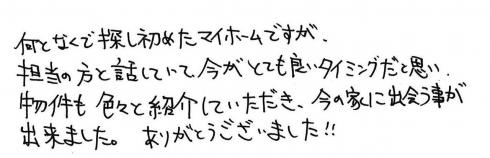 何となくで探し初めたマイホームですが、
担当の方と話していて、今がとても良いタイミングだと思い、
物件も色々と紹介していただき、今の家に出会う事が
出来ました。 ありがとうございました!!